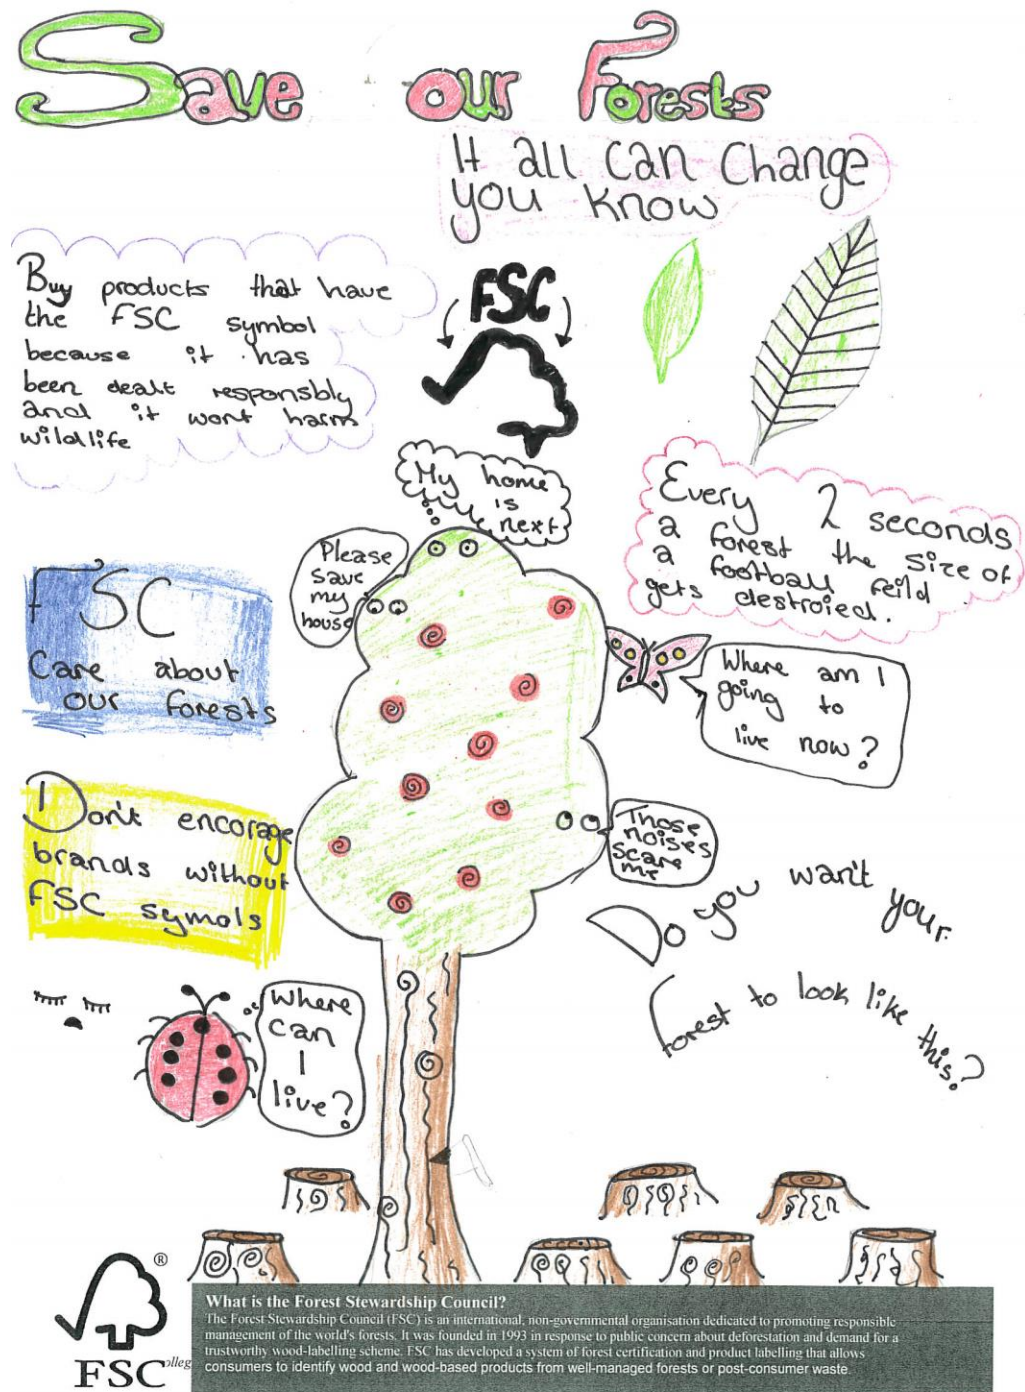 Save our Forests
It all can Change
you know
Buy products that have
the FSC symbol
because it has
been dealt responsbly
and it wont harm
wildlife
FSC
My home
is
next
Please
save
my
house
Every 2 seconds
a forest the size of
a football feild
gets destroied.
FSC
Care about
our forests
Where am I
going to
live now?
Don't encorage
brands without
FSC symols
Those
noises
scare
me
Do you wan't your
forest to look like this?
Where
can
I
live?
®
FSC
olleg
What is the Forest Stewardship Council?
The Forest Stewardship Council (FSC) is an international, non-governmental organisation dedicated to promoting responsible
management of the world's forests. It was founded in 1993 in response to public concern about deforestation and demand for a
trustworthy wood-labelling scheme. FSC has developed a system of forest certification and product labelling that allows
consumers to identify wood and wood-based products from well-managed forests or post-consumer waste.